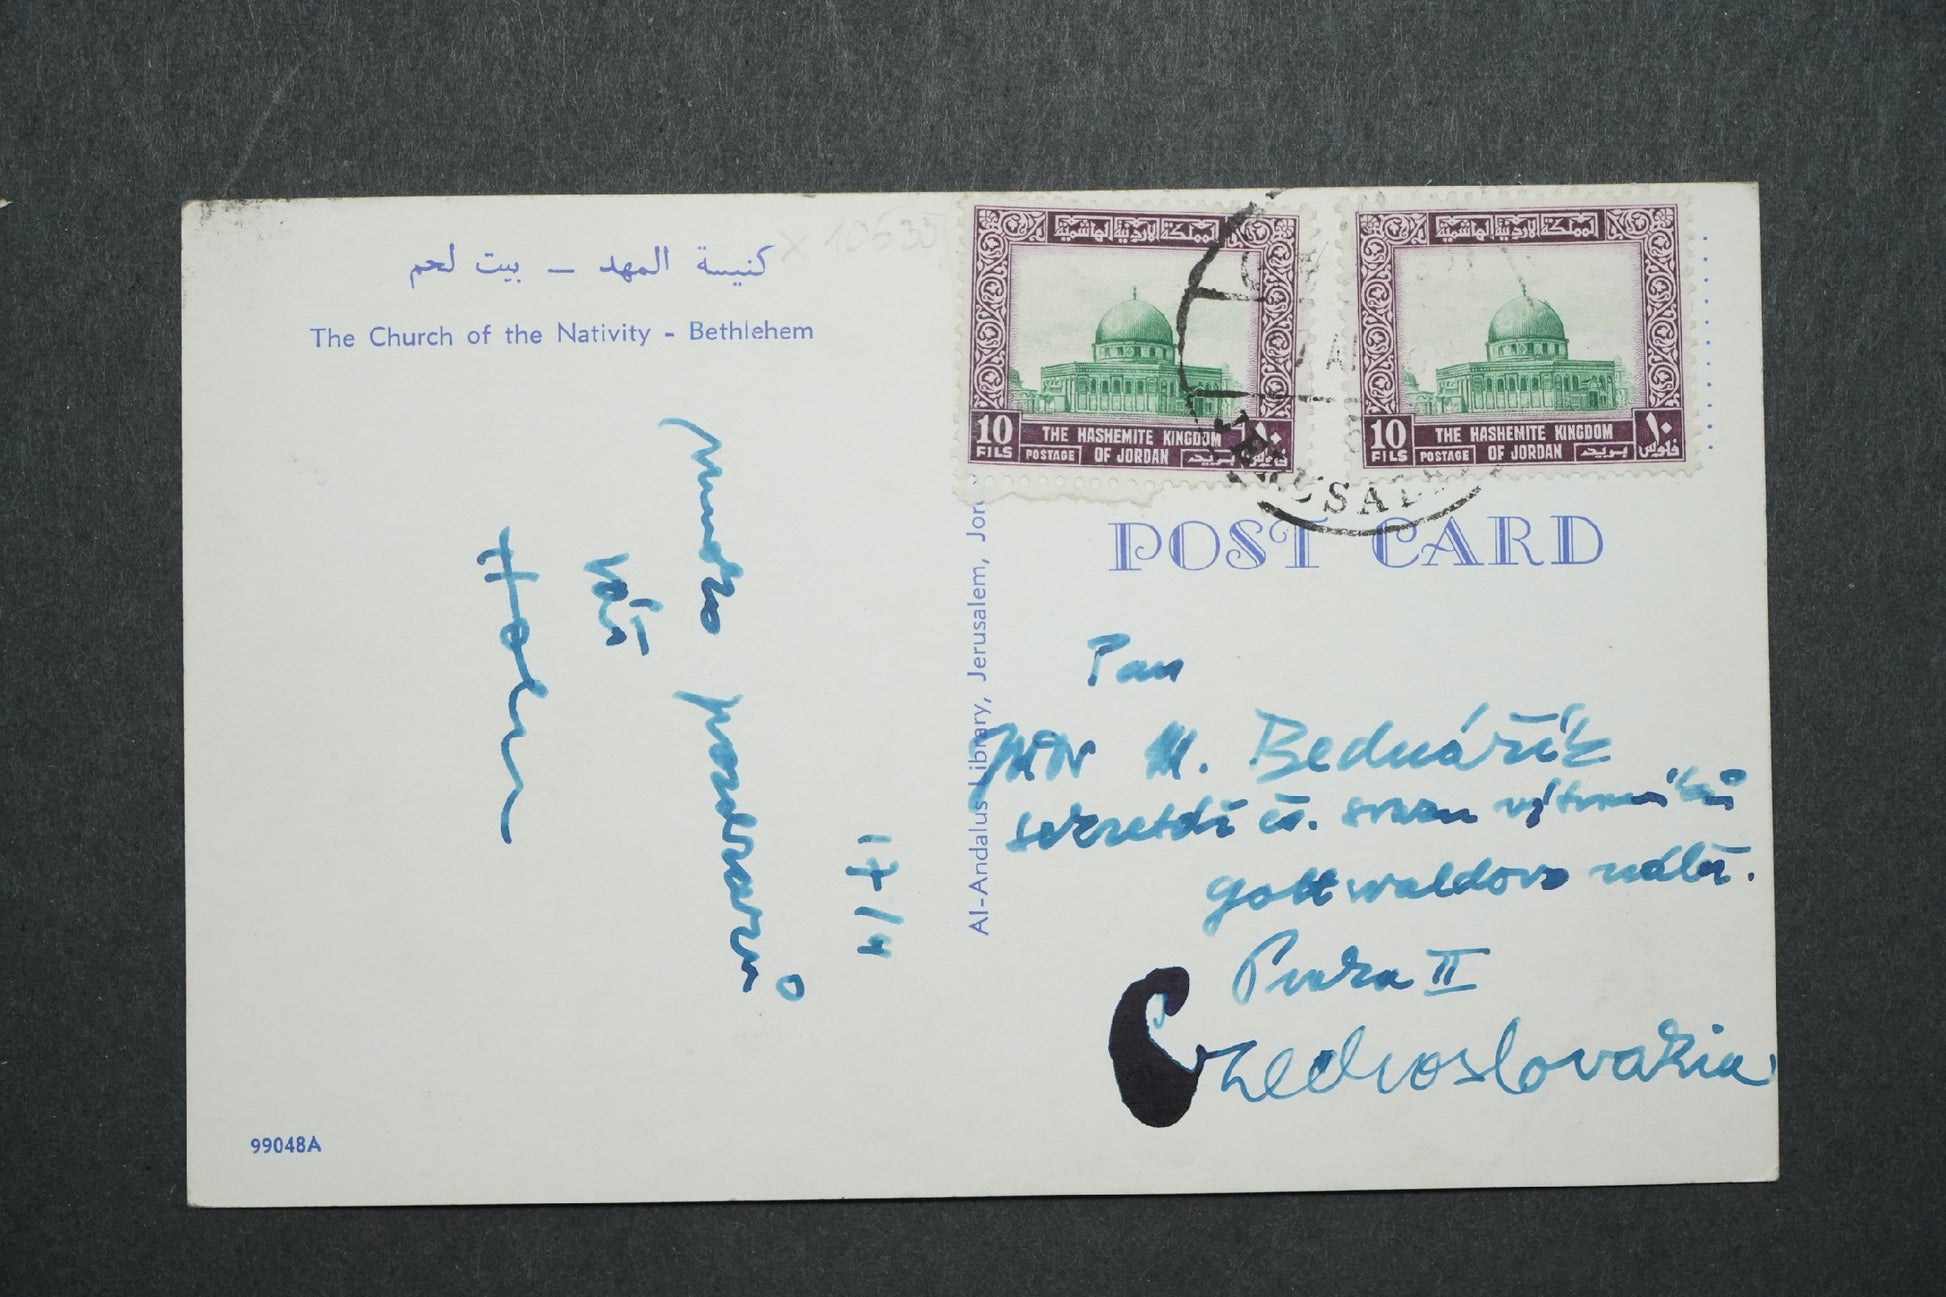 كنيسة المهد – بيت لحم
The Church of the Nativity - Bethlehem
x 10535
mnoho pozdravů
Váš
17/4
99048A
Al-Andalus Library, Jerusalem, Jor
المملكة الاردنية الهاشمية
10
FILS
THE HASHEMITE KINGDOM
POSTAGE OF JORDAN بريد
١٠
فلوس
المملكة الاردنية الهاشمية
10
FILS
THE HASHEMITE KINGDOM
POSTAGE OF JORDAN بريد
١٠
فلوس
JERUSALE
POST CARD
Pan
M. Bednářík
čs. svazu
gottwaldovo nábř.
Praha II
Czechoslovakia